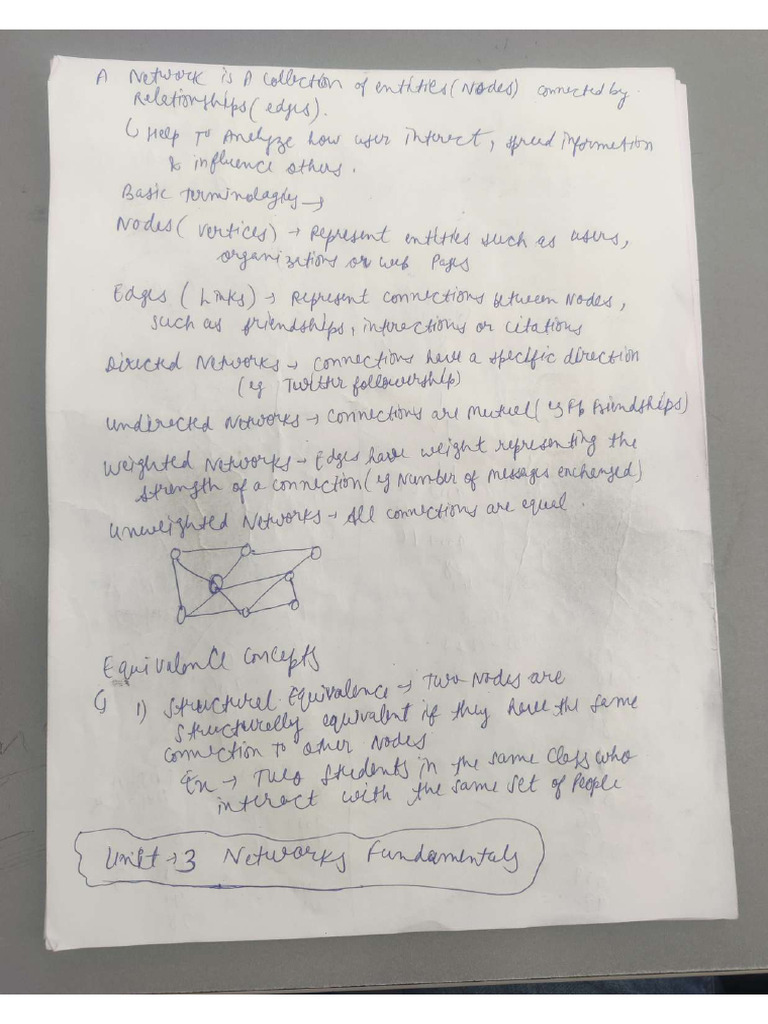 A Network is A collection of entities (Nodes) connected by
Relationships (edges).
Help To Analyze how user interect, spread information
& influence others.
Basic Terminologies →
Nodes (vertices) → Represent entities such as users,
organizations or web Pages
Edges (Links) → Represent connections between Nodes,
such as friendships, interections or citations
Directed Networks → connections have a specific direction
(eg Twitter followership)
Undirected Networks → connections are Mutuel (eg Fb Friendships)
Weighted Networks → Edges have weight representing the
strength of a connection (eg Number of Messages exchanged)
Unweighted Networks → All connections are equal.
Equivalence concepts
1) Structurel Equivalence → Two Nodes are
structurelly equivalent if they have the same
connection to other Nodes
Ex → Two Students in the same Class who
interect with the same set of People
Unit → 3 Networks Fundamentals